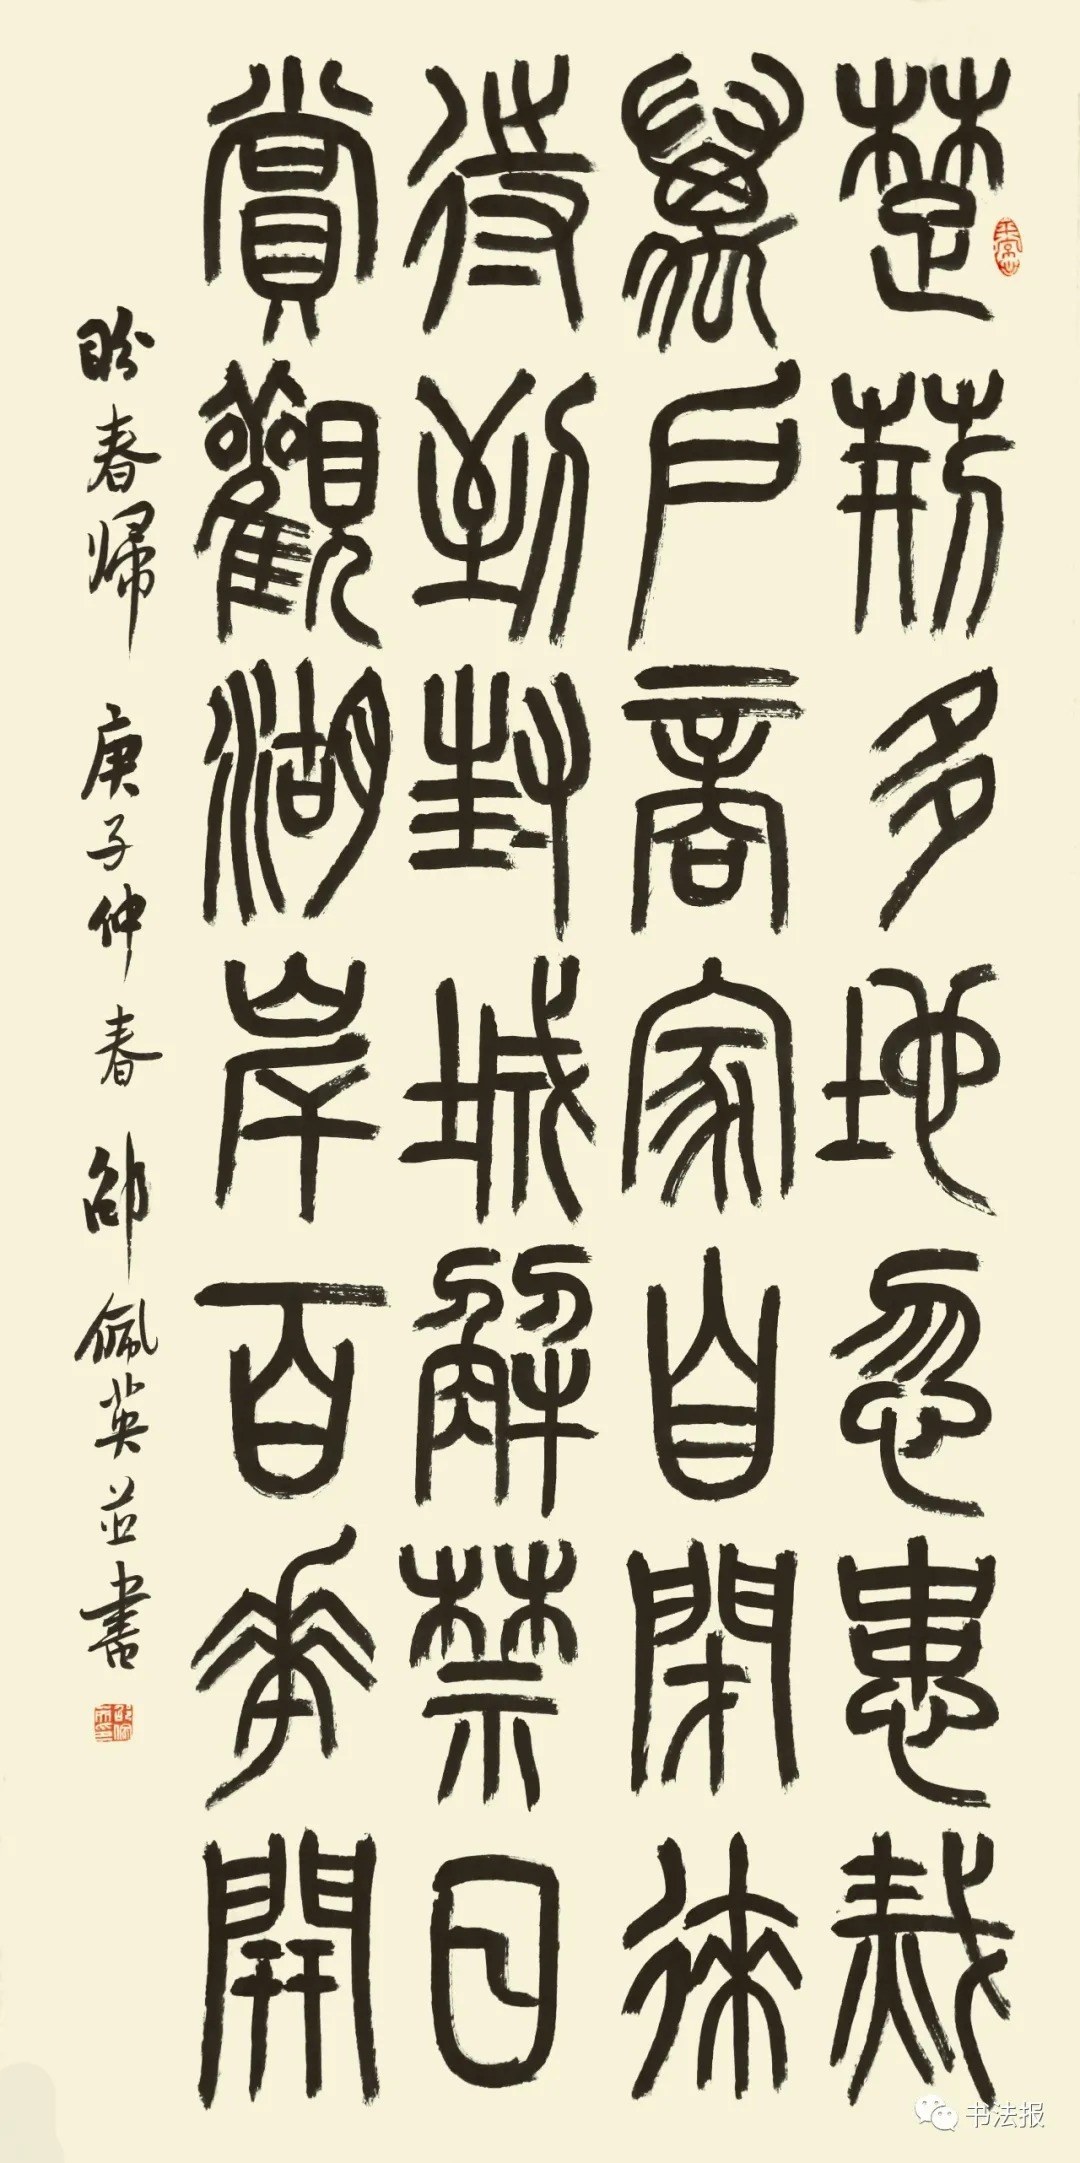 楚荆多地忽患烖
萬户商家自閉徠
待到封城解禁日
賞觀湖岸百花開
盼春歸 庚子仲春 邵佩英並書
书法报